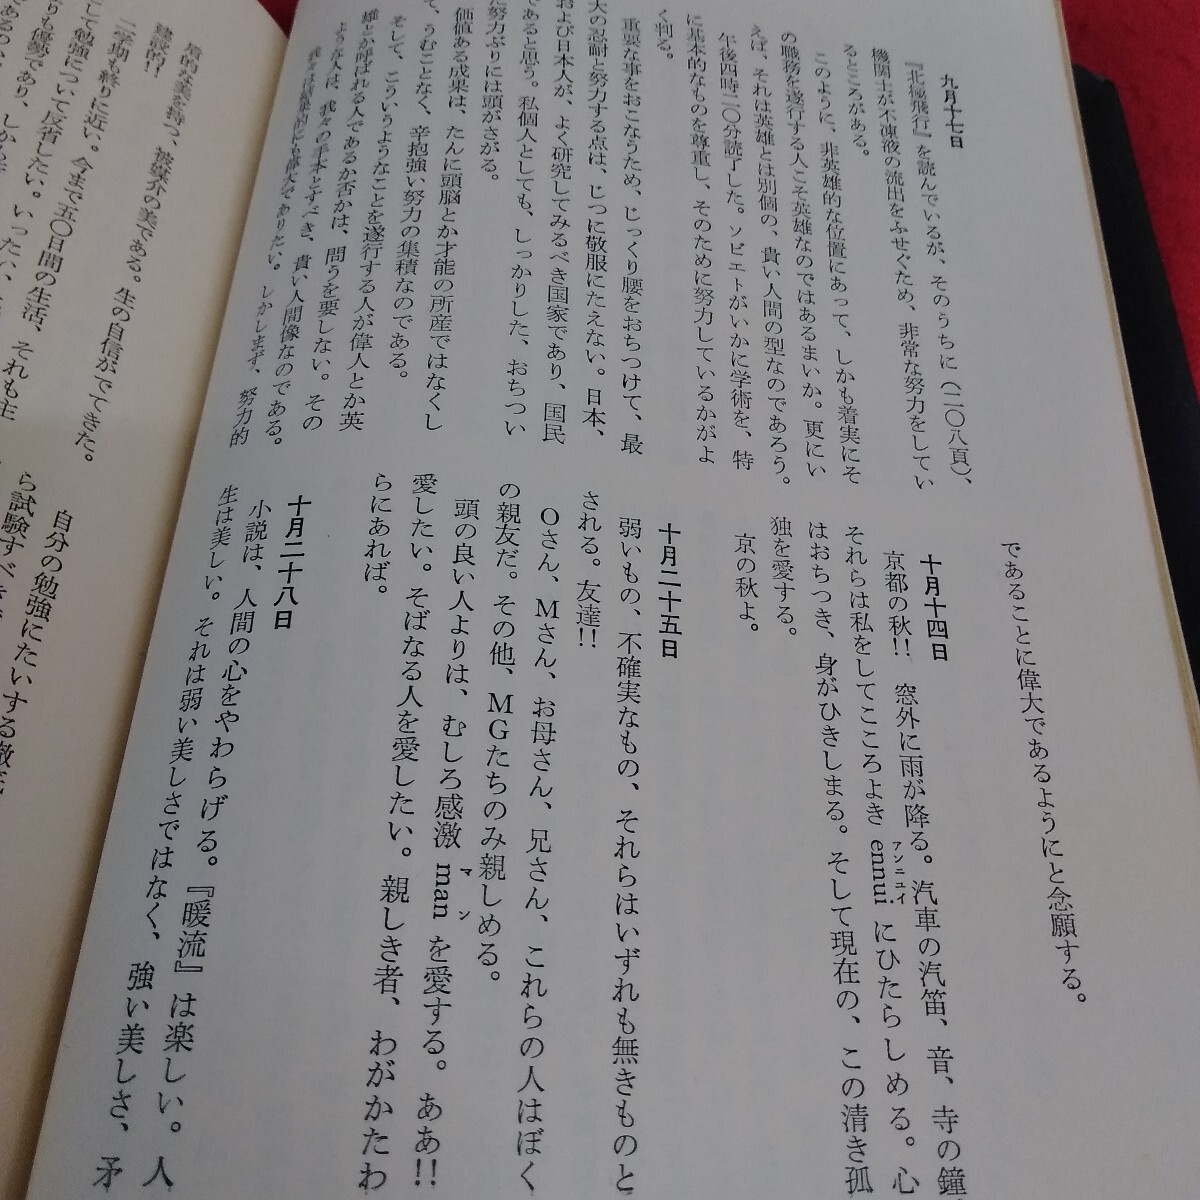 九月十七日
『北極飛行』を読んでいるが、そのうちに（二〇八頁）、
機関士が不凍液の流出をふせぐため、非常な努力をしてい
るところがある。
このように、非英雄的な位置にあって、しかも着実にそ
の職務を遂行する人こそ英雄なのではあるまいか。更にい
えば、それは英雄とは別個の、貴い人間の型なのであろう。
午後四時二〇分読了した。ソビエトがいかに学術を、特
に基本的なものを尊重し、そのために努力しているかがよ
く判る。
重要な事をおこなうため、じっくり腰をおちつけて、最
大の忍耐と努力する点は、じつに敬服にたえない。日本、
および日本人が、よく研究してみるべき国家であり、国民
であると思う。私個人としても、しっかりした、おちつい
た努力ぶりには頭がさがる。
価値ある成果は、たんに頭脳とか才能の所産ではなくし
て、うむことなく、辛抱強い努力の集積なのである。
そして、こういうようなことを遂行する人が偉人とか英
雄とか呼ばれる人であるか否かは、問うを要しない。その
ような人は、我々の手本とすべき、貴い人間像なのである。
しかしまず、努力的
であることに偉大であるようにと念願する。
十月十四日
京都の秋!!　窓外に雨が降る。汽車の汽笛、音、寺の鐘、
それらは私をしてこころよき ennui にひたらしめる。心
アンニュイ
はおちつき、身がひきしまる。そして現在の、この清き孤
独を愛する。
京の秋よ。
十月二十五日
弱いもの、不確実なもの、それらはいずれも無きものと
される。友達!!
Ｏさん、Ｍさん、お母さん、兄さん、これらの人はぼく
の親友だ。その他、ＭＧたちのみ親しめる。
頭の良い人よりは、むしろ感激 man を愛する。ああ!!
マン
愛したい。そばなる人を愛したい。親しき者、わがかたわ
らにあれば。
十月二十八日
小説は、人間の心をやわらげる。『暖流』は楽しい。人
生は美しい。それは弱い美しさではなく、強い美しさ、矛
盾的な美を持つ、被媒介の美である。生の自信がでてきた。
建設的!!
二学期も終りに近い。今まで五〇日間の生活、それも主
として勉強について反省したい。いったい、
よりも優勢であり、しから
自分の勉強にたいする徹底
ら試験すべき